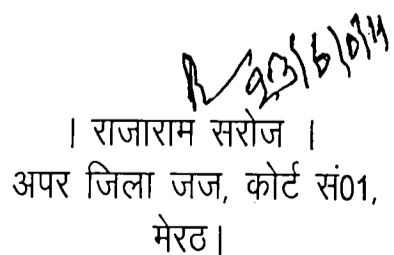 । राजाराम सरोज ।
अपर जिला जज, कोर्ट सं01,
मेरठ।